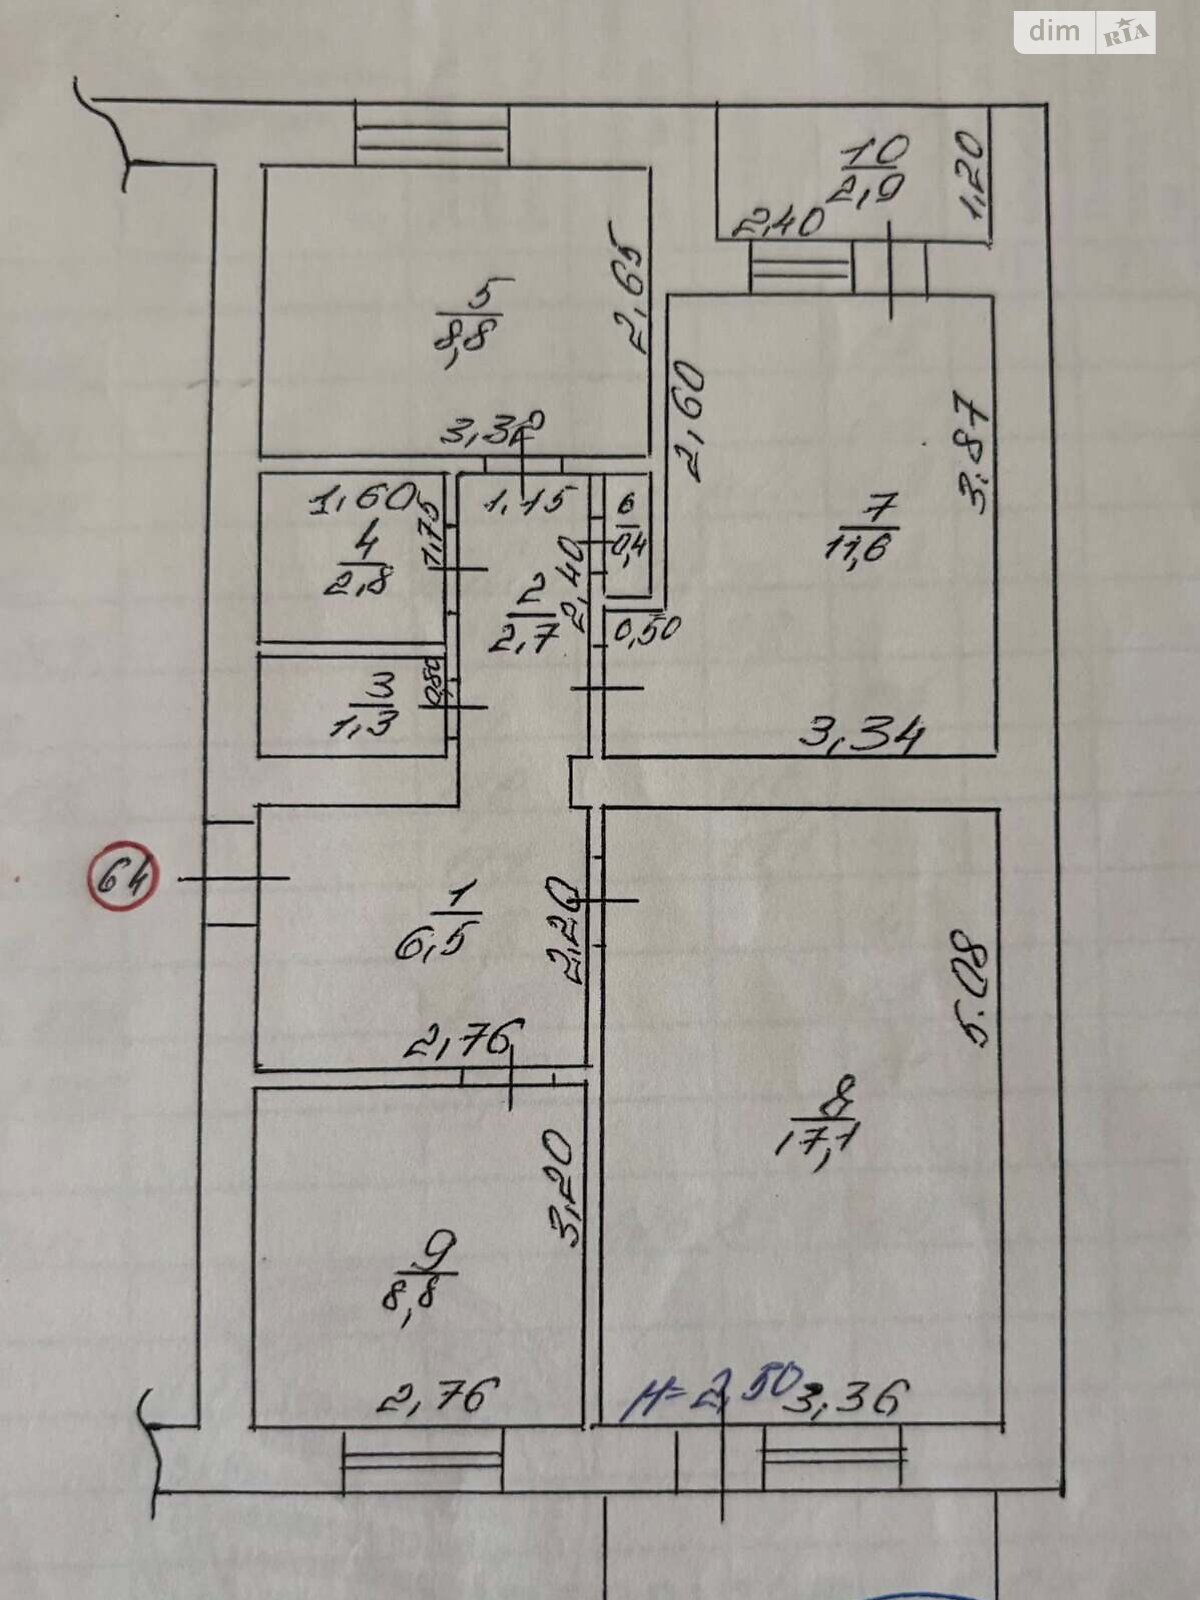 dim RIA
10
2,9
1,20
2,40
5
8,8
2,65
3,32
2,60
3.87
7
11,6
1,60
1,75
4
2,8
1,15
6
0,4
2,40
2
2,7
0,50
3
1,3
0,80
3,34
64
1
6,5
2,20
2,76
5.08
8
17,1
3,20
9
8,8
2,76
H=2,50
3,36